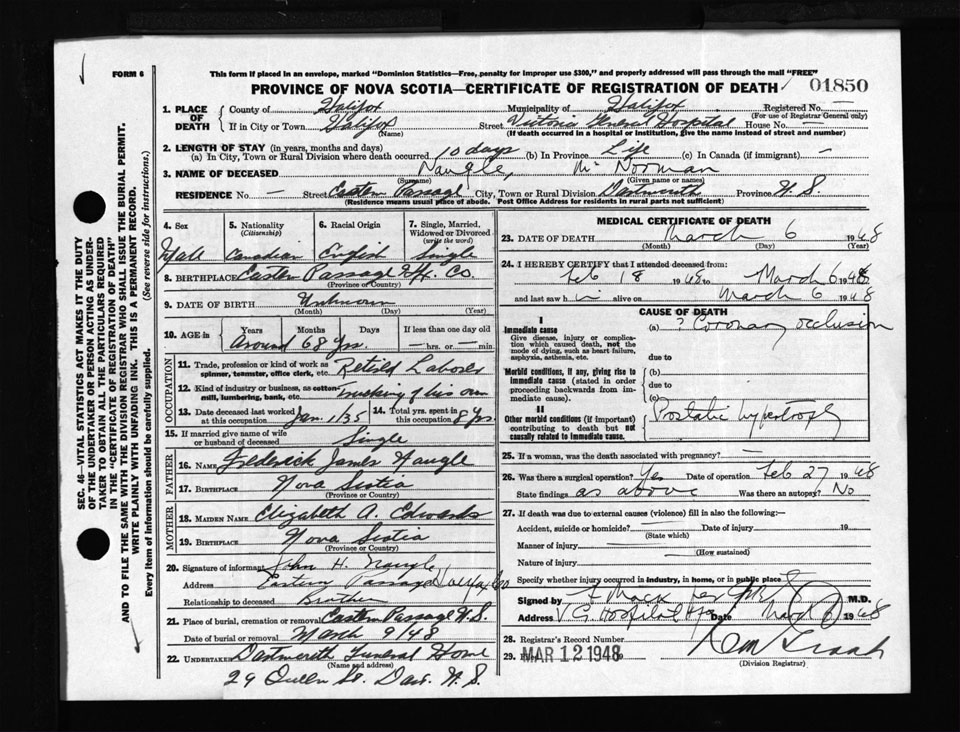 FORM 6
This form if placed in an envelope, marked "Dominion Statistics—Free, penalty for improper use $300," and properly addressed will pass through the mail "FREE"
PROVINCE OF NOVA SCOTIA—CERTIFICATE OF REGISTRATION OF DEATH 01850
1. PLACE OF DEATH
County of Halifax Municipality of Halifax Registered No. —
(For use of Registrar General only)
If in City or Town Halifax Street Victoria General Hospital House No. —
(Name) (If death occurred in a hospital or institution, give the name instead of street and number)
2. LENGTH OF STAY (in years, months and days)
(a) In City, Town or Rural Division where death occurred 10 days (b) In Province Life (c) In Canada (if immigrant) —
3. NAME OF DECEASED Naugle, Mr Norman
(Surname) (Given name or names)
RESIDENCE No. — Street Eastern Passage City, Town or Rural Division Dartmouth Province N. S.
(Residence means usual place of abode. Post Office Address for residents in rural parts not sufficient)
4. Sex Male
5. Nationality (Citizenship) Canadian
6. Racial Origin English
7. Single, Married, Widowed or Divorced (write the word) Single
8. BIRTHPLACE Eastern Passage Hfx. Co.
(Province or Country)
9. DATE OF BIRTH Unknown
(Month) (Day) (Year)
10. AGE in Years Months Days If less than one day old
Around 68 Yrs. — hrs. or — min.
OCCUPATION
11. Trade, profession or kind of work as spinner, teamster, office clerk, etc. Retired Laborer
12. Kind of industry or business, as cotton-mill, lumbering, bank, etc. Trucking of his own
13. Date deceased last worked at this occupation Jan. 1/35 14. Total yrs. spent in this occupation 8 Yrs.
15. If married give name of wife or husband of deceased Single
FATHER
16. NAME Frederick James Naugle
17. BIRTHPLACE Nova Scotia
(Province or Country)
MOTHER
18. MAIDEN NAME Elizabeth A. Edwards
19. BIRTHPLACE Nova Scotia
(Province or Country)
20. Signature of informant John H. Naugle
Address Eastern Passage Halifax Co
Relationship to deceased Brother
21. Place of burial, cremation or removal Eastern Passage N.S.
Date of burial or removal March 9/48
22. UNDERTAKER Dartmouth Funeral Home
(Name and address)
29 Queen St. Dart. N. S.
MEDICAL CERTIFICATE OF DEATH
23. DATE OF DEATH March 6 1948
(Month) (Day) (Year)
24. I HEREBY CERTIFY that I attended deceased from:
Feb 18 1948 to March 6 1948
and last saw him alive on March 6 1948
CAUSE OF DEATH
I
Immediate cause
Give disease, injury or complication which caused death, not the mode of dying, such as heart failure, asphyxia, asthenia, etc.
(a) ? Coronary occlusion
due to
Morbid conditions, if any, giving rise to immediate cause (stated in order proceeding backwards from immediate cause).
(b)
due to
(c)
II
Other morbid conditions (if important) contributing to death but not causally related to immediate cause.
Prostatic hypertrophy
25. If a woman, was the death associated with pregnancy? —
26. Was there a surgical operation? Yes Date of operation Feb 27 1948
State findings as above Was there an autopsy? No
27. If death was due to external causes (violence) fill in also the following:—
Accident, suicide or homicide? Date of injury 19
(State which)
Manner of injury
(How sustained)
Nature of injury
Specify whether injury occurred in industry, in home, or in public place
Signed by M.D.
Address V G Hospital Hfx Date March 6 1948
28. Registrar's Record Number
29. MAR 12 1948
(Division Registrar)
SEC. 46—VITAL STATISTICS ACT MAKES IT THE DUTY OF THE UNDERTAKER OR PERSON ACTING AS UNDERTAKER TO OBTAIN ALL THE PARTICULARS REQUIRED IN THE "CERTIFICATE OF REGISTRATION OF DEATH" AND TO FILE THE SAME WITH THE DIVISION REGISTRAR WHO SHALL ISSUE THE BURIAL PERMIT.
WRITE PLAINLY WITH UNFADING INK. THIS IS A PERMANENT RECORD.
Every item of information should be carefully supplied. (See reverse side for instructions.)